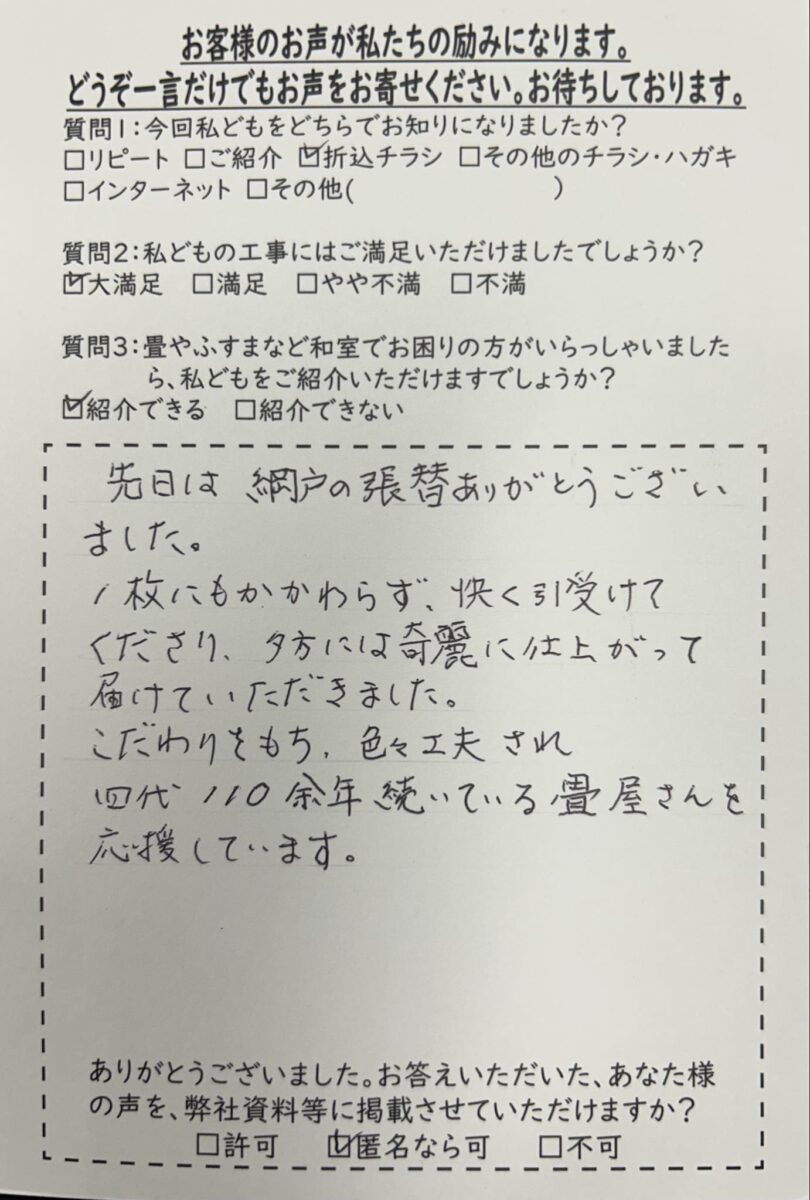 お客様のお声が私たちの励みになります。
どうぞ一言だけでもお声をお寄せください。お待ちしております。
質問1:今回私どもをどちらでお知りになりましたか?
□リピート □ご紹介 ☑折込チラシ □その他のチラシ・ハガキ
□インターネット □その他( )
質問2:私どもの工事にはご満足いただけましたでしょうか?
☑大満足 □満足 □やや不満 □不満
質問3:畳やふすまなど和室でお困りの方がいらっしゃいました
ら、私どもをご紹介いただけますでしょうか?
☑紹介できる □紹介できない
先日は 網戸の張替ありがとうござい
ました。
1枚にもかかわらず、快く引受けて
くださり、夕方には奇麗に仕上がって
届けていただきました。
こだわりをもち、色々工夫され
四代110余年続いている畳屋さんを
応援しています。
ありがとうございました。お答えいただいた、あなた様
の声を、弊社資料等に掲載させていただけますか?
□許可 ☑匿名なら可 □不可